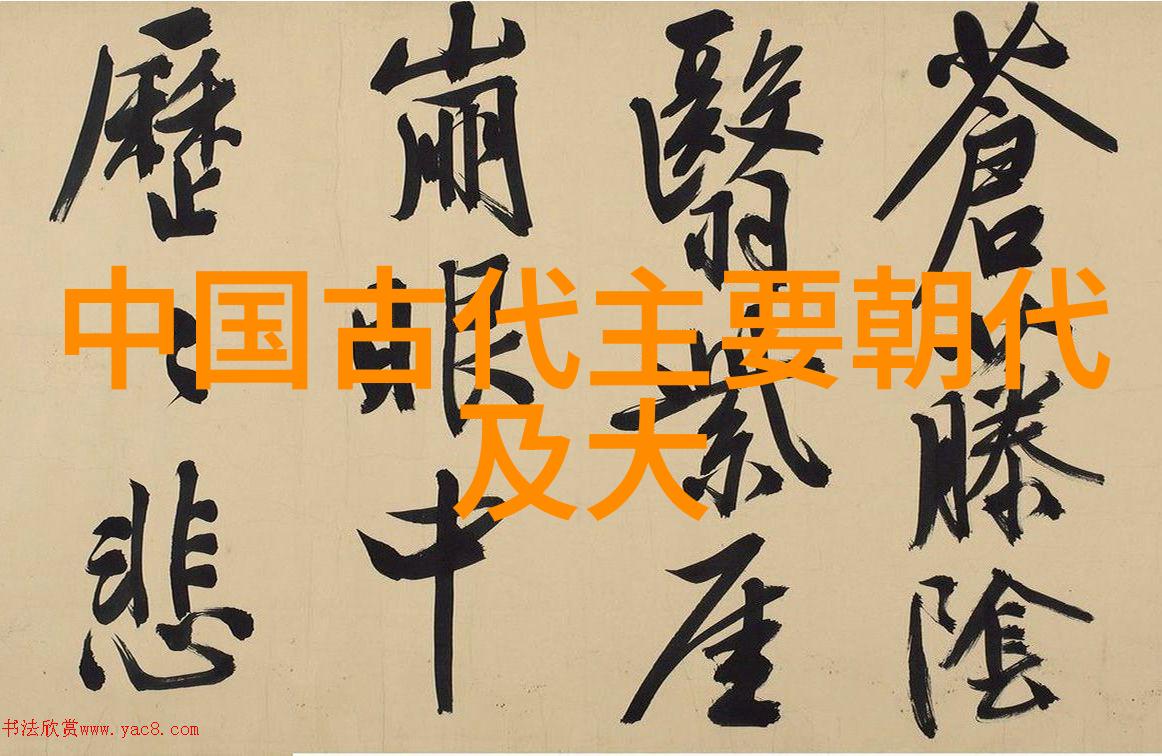 中国古代主要朝代
及大
蒼藤陰
翳紫厓
崩眼中
歷々悲
书法欣赏www.yac8.com